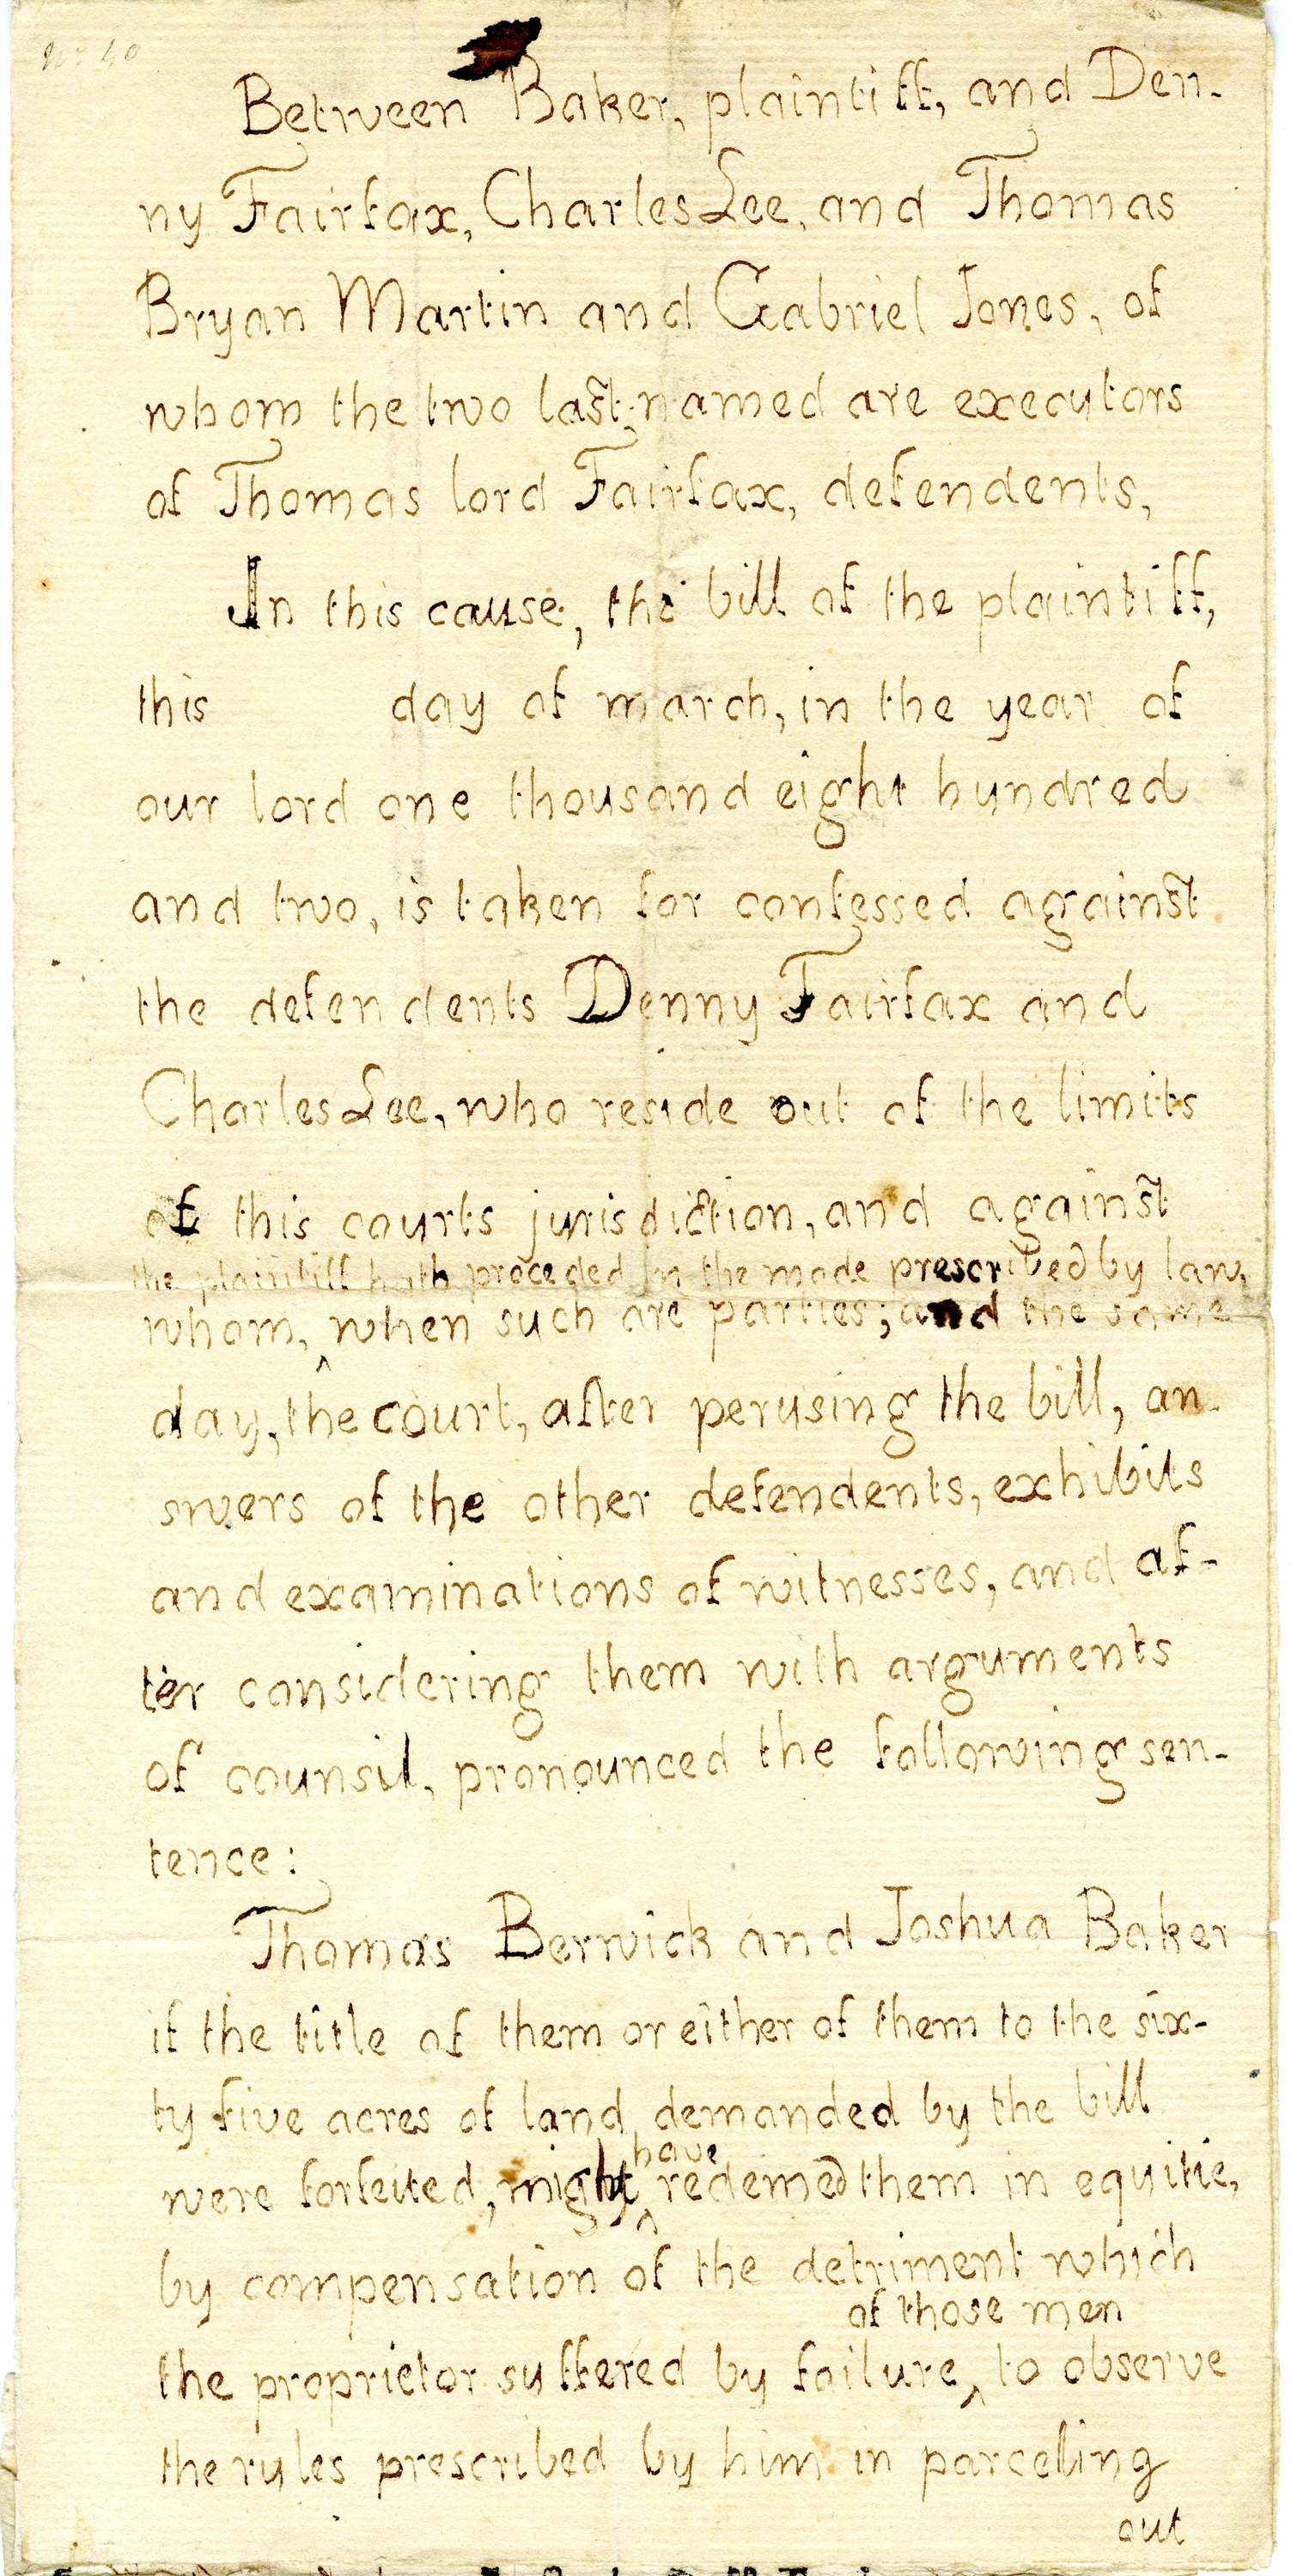 No 40
Between Baker, plaintiff, and Den-
ny Fairfax, Charles Lee, and Thomas
Bryan Martin and Gabriel Jones, of
whom the two last-named are executors
of Thomas lord Fairfax, defendents,
In this cause, the bill of the plaintiff,
this day of march, in the year of
our lord one thousand eight hundred
and two, is taken for confessed against
the defendents Denny Fairfax and
Charles Lee, who reside out of the limits
of this courts jurisdiction, and against
the plaintiff hath proceded in the mode prescribed by law,
whom, ^ when such are parties; and the same
day, the court, after perusing the bill, an-
swers of the other defendents, exhibits
and examinations of witnesses, and af-
ter considering them with arguments
of counsil, pronounced the following sen-
tence:
Thomas Berwick and Joshua Baker
if the title of them or either of them to the six-
ty five acres of land demanded by the bill
have
were forfeited, might ^ redemed them in equitie,
by compensation of the detriment which
of those men
the proprietor suffered by failure ^ to observe
the rules prescribed by him in parceling
out